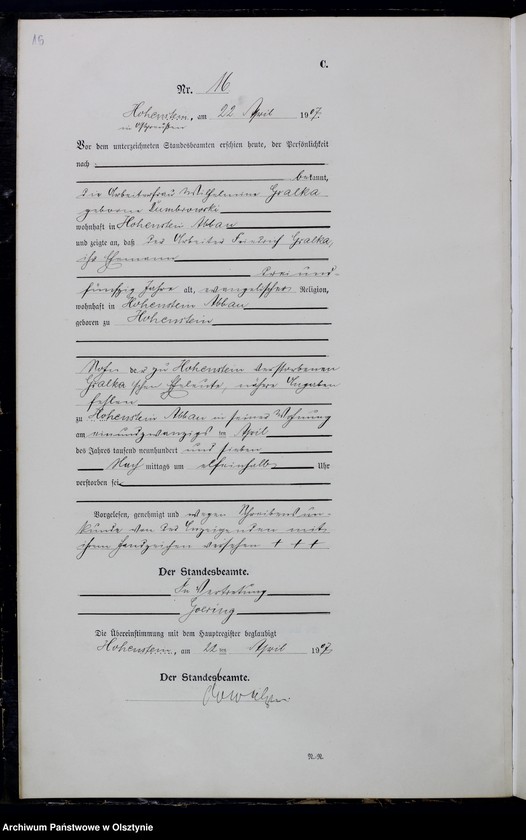 15
C.
Nr. 16
Hohenstein, am 22 April 1907.
in Ostpreußen
Vor dem unterzeichneten Standesbeamten erschien heute, der Persönlichkeit
nach
bekannt,
die Arbeiterfrau Wilhelmine Gralka
geborene Dumbrowski
wohnhaft in Hohenstein Abbau
und zeigte an, daß der Arbeiter Friedrich Gralka,
ihr Ehemann
drei und
fünfzig Jahre alt, evangelischer Religion,
wohnhaft in Hohenstein Abbau
geboren zu Hohenstein
Sohn der zu Hohenstein verstorbenen
Gralka'schen Eheleute, nähere Angaben
fehlen
zu Hohenstein Abbau in seiner Wohnung
am einundzwanzigs ten April
des Jahres tausend neunhundert und sieben
Nach mittags um elfeinhalb Uhr
verstorben sei.
Vorgelesen, genehmigt und wegen Schreibensun-
kunde von der Anzeigenden mit
ihrem Handzeichen versehen + + +
Der Standesbeamte.
In Vertretung
Goering
Die Übereinstimmung mit dem Hauptregister beglaubigt
Hohenstein, am 22ten April 1907
Der Standesbeamte.
N.-R.
Archiwum Państwowe w Olsztynie